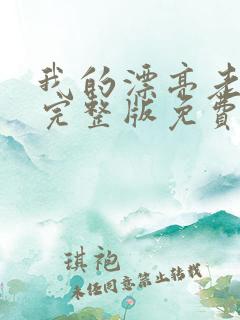 我的漂亮老
完整版免费
琪袍
未经同意禁止转载